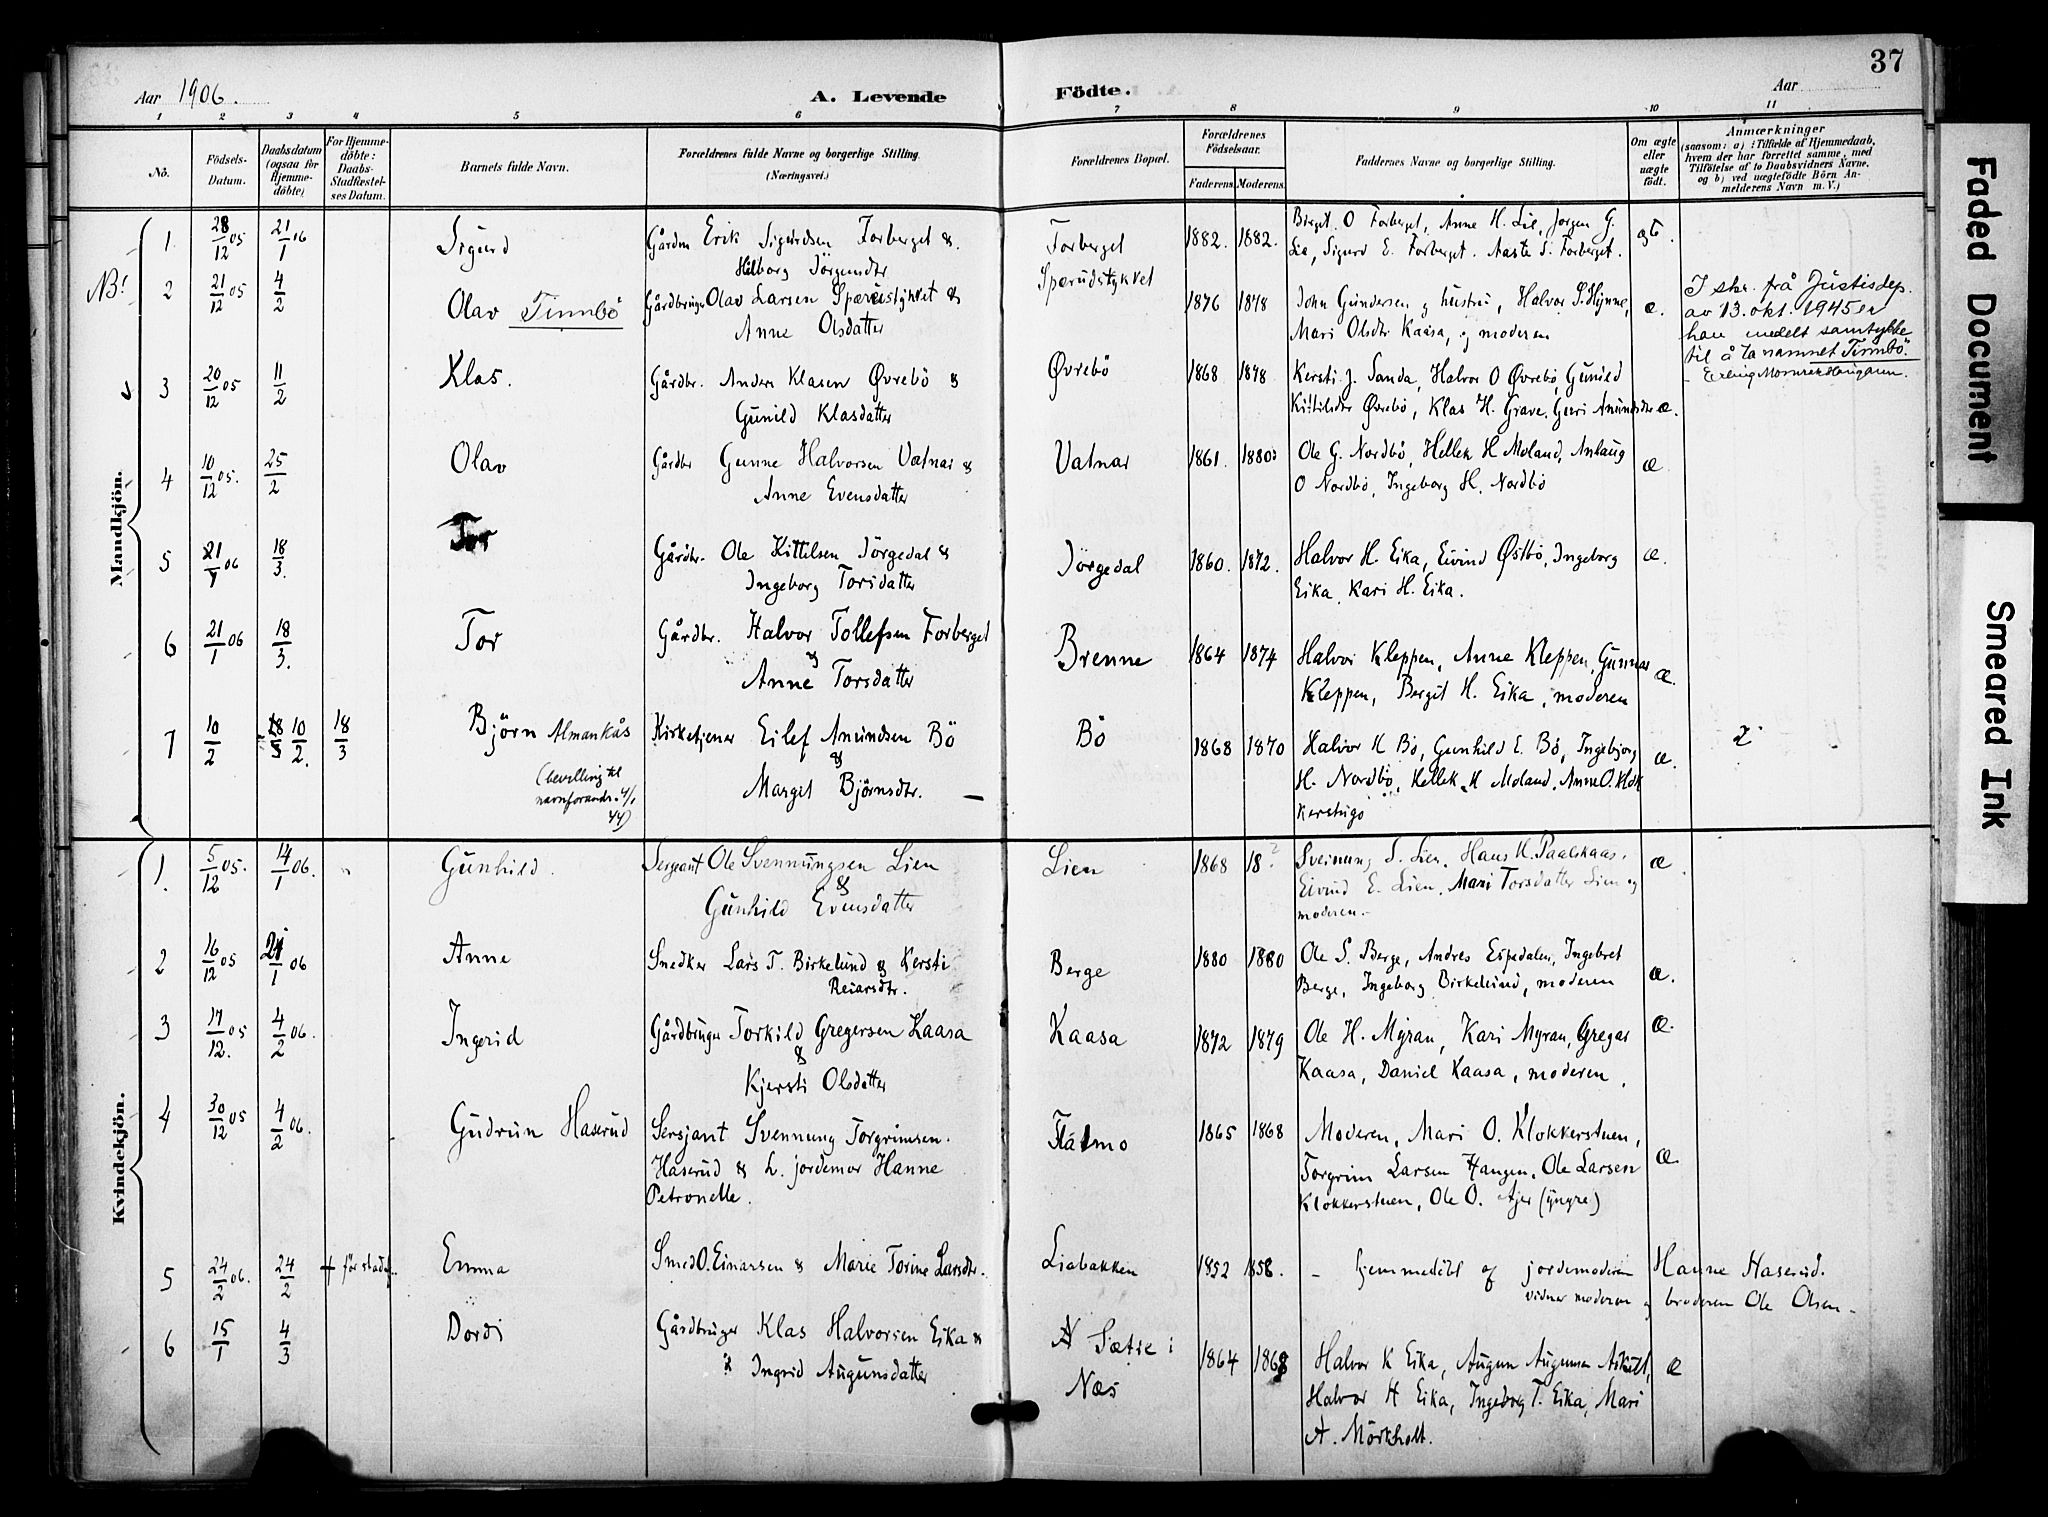 37
Aar 1906.
A. Levende
Födte.
Aar
1 2 3 4 5 6 7 8 9 10 11
No.
Födsels-
Datum.
Daabsdatum
(ogsaa for
Hjemme-
döbte)
For Hjemme-
döbte:
Daabs-
Stadfæstel-
ses Datum.
Barnets fulde Navn.
Forældrenes fulde Navne og borgerlige Stilling.
(Næringsvei.)
Forældrenes Bopæl.
Forældrenes
Födselsaar.
Faderens. Moderens.
Faddernes Navne og borgerlige Stilling.
Om ægte
eller
uægte
födt.
Anmærkninger
(saasom: a) i Tilfælde af Hjemmedaab,
hvem der har forrettet samme, med
Tilföielse af to Daabsvidners Navne,
og b) ved uægtefödte Börn An-
melderens Navn m. V.)
Mandkjön.
1. 28/12 05 21/1 06 Sigurd Gårdm Erik Sigurdsen Forberget &
Hilborg Jörgensdtr
Forberget 1882. 1882.
Birget. O Forberget, Anne H. Lie, Jørgen G.
Lie, Sigurd E. Forberget. Aaste S. Forberget.
NB! 2 21/12 05 4/2 Olav Tinnbö Gårdbruger Olav Larsen Sperudstykket &
Anne Olsdatter
Sperudstykket 1876 1878
John Gundersen og hustru, Halvor S. Hynne,
Mari Olsdtr Kaasa, og moderen æ.
I skr. frå Justisdep.
av 13. okt. 1945 er
han medelt samtykke
til å ta namnet Tinnbö.
3 20/12 05 11/2 Klas. Gårdbr. Anders Klasen Øvrebö &
Gunild Klasdatter
Øvrebö 1868 1878
Kersti J. Sanda, Halvor O Øvrebö, Gunild
Kittilsdtr Øvrebö, Klas H. Grave, Guri Amundsdtr æ.
4 10/12 05. 25/2 Olav Gårdbr Gunne Halvorsen Valnar &
Anne Evensdatter
Valnar 1861. 1880
Ole G. Nordbö, Hellek H Moland, Anlaug
O Nordbö, Ingeborg H. Nordbö æ
5 21/1 06 18/3. Tor Gårdbr. Ole Kittilsen Jörgedal &
Ingeborg Torsdatter
Jörgedal 1860. 1872.
Halvor H. Eika, Eivind Østbö, Ingeborg
Eika, Kari H. Eika. æ.
6 21/1 06 18/3. Tor Gårdbr. Halvor Tollefsen Forberget
&
Anne Torsdatter
Brenne 1864 1874
Halvor Kleppen, Anne Kleppen, Gunnar
Kleppen, Bergit H. Eika, moderen æ.
7 10/2 18/3 10/2. 18/3 Björn Almankås
(bevilling til
navnforandr. 4/1
44)
Kirketjener Eilef Amundsen Bö
&
Marget Björnsdtr.
Bö 1868 1870
Halvor K Bö, Gunhild E. Bö, Ingebjorg
H. Nordbö, Hellek H Moland, Anne O. Klok
kerstugo æ. 2
Kvindekjön.
1. 5/12 05. 14/1 06. Gunhild. Sergeant Ole Svennungsen Lien
&
Gunhild Evensdatter
Lien 1868 18 ?
Sveinung S. Lien. Hans K. Paalskaas.
Eivind E. Lien. Mari Torsdatter Lien og
moderen. æ
2 16/12 05 21/1 06 Anne Snedker Lars T. Birkelund & Kersti
Reiarsdtr.
Berge 1880 1880
Ole S. Berge, Andres Espedalen, Ingebret
Berge, Ingeborg Birkelund, moderen æ.
3 17/12. 05 4/2 06. Ingerid Gårdbruger Torkild Gregersen Kaasa
&
Kjersti Olsdatter
Kaasa 1872 1879
Ole H. Myran, Kari Myran, Gregar
Kaasa, Daniel Kaasa, moderen. æ.
4 30/12 05 4/2 06. Gudrun Haserud Sersjant Svennung Torgrimsen
Haserud & h. jordemor Hanne
Petronelle.
Flatmo 1865 1868
Moderen, Mari O. Klokkerstuen,
Torgrim Larsen Haugen, Ole Larsen
Klokkerstuen, Ole O. Ajer (yngre) æ.
5 24/2 06. 24/2 † før stadf. Emma Smed O. Einarsen & Marie Torine Larsdtr.
Liabakken 1852 1858.
– hjemmedöbt af jordemoderen Hanne Haserud.
vidner moderen og broderen Ole Olsen –
6 15/1 4/3 Dordi Gårdbruger Klas Halvorsen Eika &
Ingrid Augunsdatter
N Sætre i
Næs
1864 1868
Halvor K Eika, Augun Augunsen Askilt,
Halvor H Eika, Ingeborg T. Eika, Mari
A. Mörkholt. æ
Faded Document
Smeared Ink